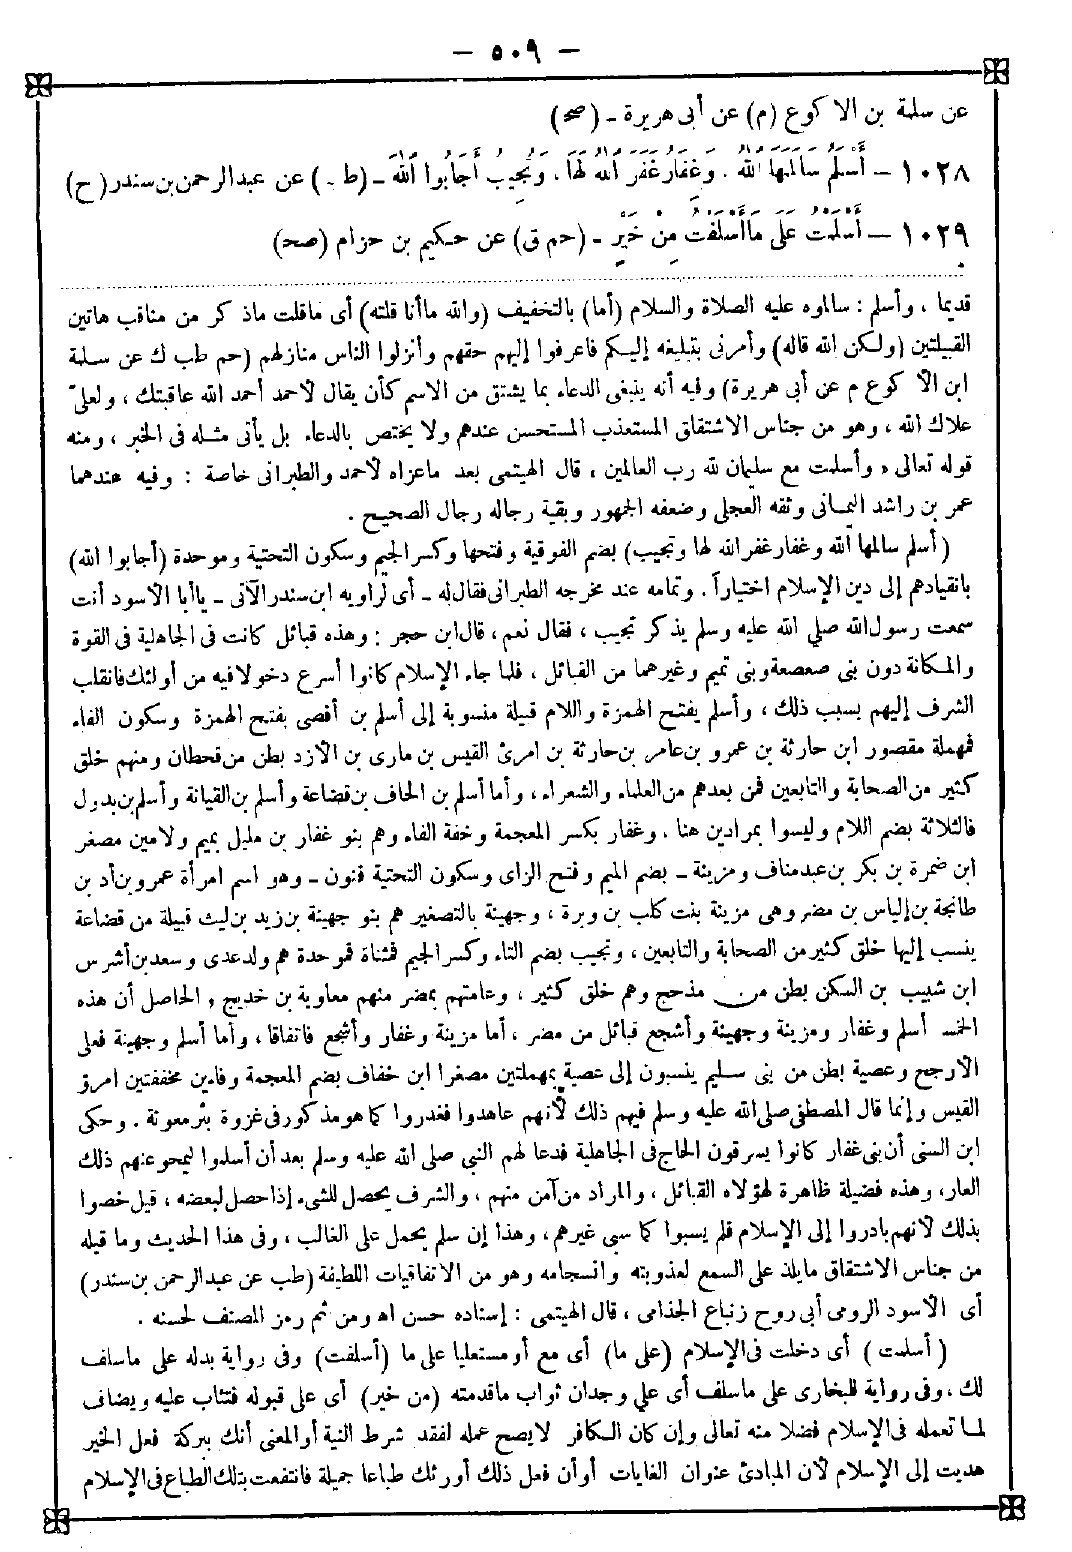 – ٥٠٩ –
عن سلمة بن الاكوع (م) عن أبى هريرة - (صح)
١٠٢٨ – أَسْلَمُ سَالَمَهَا اللهُ . وَغِفَارُ غَفَرَ اللهُ لَهَا . وَتُجِيبُ أَجَابُوا اللهَ - (طب) عن عبدالرحمن بن سندر (ح)
١٠٢٩ – أَسْلَمْتُ عَلَى مَا أَسْلَفْتَ مِنْ خَيْرٍ - (حم ق) عن حكيم بن حزام (صح)
قديما ، وأسلم : سالموه عليه الصلاة والسلام (أما) بالتخفيف (والله ماأنا قلته) أى ماقلت ماذكر من مناقب هاتين
القبيلتين (ولكن الله قاله) وأمرنى بتبليغه إليكم فاعرفوا إليهم حقهم وأنزلوا الناس منازلهم (حم طب ك عن سلمة
ابن الاكوع م عن أبى هريرة) وفيه أنه ينبغى الدعاء بما يشتق من الاسم كأن يقال لأحمد أحمد الله عاقبتك ، ولعلىّ
علاك الله ، وهو من جناس الاشتقاق المستعذب المستحسن عندهم ولا يختص بالدعاء بل يأتى مثله فى الخبر ، ومنه
قوله تعالى « وأسلمت مع سليمان لله رب العالمين ، قال الهيتمى بعد ماعزاه لأحمد والطبرانى خاصة : وفيه عندهما
عمر بن راشد اليمانى وثقه العجلى وضعفه الجمهور وبقية رجاله رجال الصحيح .
(أسلم سالمها الله وغفار غفر الله لها وتجيب) بضم الفوقية وفتحها وكسر الجيم وسكون التحتية وموحدة (أجابوا الله)
بانقيادهم إلى دين الإسلام اختياراً . وتمامه عند مخرجه الطبرانى فقال له - أى لراويه ابن سندر الآتى - ياأبا الأسود أنت
سمعت رسول الله صلى الله عليه وسلم يذكر تجيب ، فقال نعم ، قال ابن حجر : وهذه قبائل كانت فى الجاهلية فى القوة
والمكانة دون بنى صعصعة وبنى تميم وغيرهما من القبائل ، فلما جاء الإسلام كانوا أسرع دخولا فيه من أولئك فانقلب
الشرف إليهم بسبب ذلك ، وأسلم بفتح الهمزة واللام قبيلة منسوبة إلى أسلم بن أفصى بفتح الهمزة وسكون الفاء
فمهملة مقصور ابن حارثة بن عمرو بن عامر بن حارثة بن امرئ القيس بن مارى بن الأزد بطن من قحطان ومنهم خلق
كثير من الصحابة والتابعين فمن بعدهم من العلماء والشعراء ، وأما أسلم بن الحاف بن قضاعة وأسلم بن القيانة وأسلم بن بدول
فالثلاثة بضم اللام وليسوا بمرادين هنا . وغفار بكسر المعجمة وخفة الفاء وهم بنو غفار بن مليل بميم ولامين مصغر
ابن ضمرة بن بكر بن عبد مناف ومزينة - بضم الميم وفتح الزاى وسكون التحتية فنون - وهو اسم امرأة عمرو بن أد بن
طانجة بن إلياس بن مضر وهى مزينة بنت كلب بن وبرة ، وجهينة بالتصغير هم بنو جهينة بن زيد بن ليث قبيلة من قضاعة
ينسب إليها خلق كثير من الصحابة والتابعين ، وتجيب بضم التاء وكسر الجيم فمثناة فموحدة هم ولد عدى وسعد بن أشرس
ابن شبيب بن السكن بطن من مذحج وهم خلق كثير ، وعامتهم بمضر منهم معاوية بن خديج , الحاصل أن هذه
الخمسة أسلم وغفار ومزينة وجهينة وأشجع قبائل من مضر ، أما مزينة وغفار وأشجع فاتفاقا ، وأما أسلم وجهينة فعلى
الأرجح وعصية بطن من بنى سليم ينسبون إلى عصية بمهملتين مصغرا ابن خفاف بضم المعجمة وفاءين مخففتين امرؤ
القيس وإنما قال المصطفى صلى الله عليه وسلم فيهم ذلك لأنهم عاهدوا فغدروا كما هو مذكور فى غزوة بئر معونة . وحكى
ابن السنى أن بنى غفار كانوا يسرقون الحاج فى الجاهلية فدعا لهم النبي صلى الله عليه وسلم بعد أن أسلموا ليمحو عنهم ذلك
العار ، وهذه فضيلة ظاهرة لهؤلاء القبائل ، والمراد من آمن منهم ، والشرف يحصل للشىء إذا حصل لبعضه ، قيل خصوا
بذلك لأنهم بادروا إلى الإسلام فلم يسبوا كما سبى غيرهم ، وهذا إن سلم يحمل على الغالب ، وفى هذا الحديث وما قبله
من جناس الاشتقاق مايلذ على السمع لعذوبته وانسجامه وهو من الاتفاقيات اللطيفة (طب عن عبد الرحمن بن سندر)
أى الأسود الرومى أبى روح زنباع الجذامى ، قال الهيتمى : إسناده حسن اه ومن ثم رمز المصنف لحسنه .
(أسلمت) أى دخلت فى الإسلام (على ما) أى مع أو مستعليا على ما (أسلفت) وفى رواية بدله على ماسلف
لك ، وفى رواية للبخارى على ماسلف أى على وجدان ثواب ماقدمته (من خير) أى على قبوله فتثاب عليه ويضاف
لما تعمله فى الإسلام فضلا منه تعالى وإن كان الكافر لايصح عمله لفقد شرط النية أو المعنى أنك ببركة فعل الخير
هديت إلى الإسلام لأن المبادئ عنوان الغايات أو أن فعل ذلك أورثك طباعا جميلة فانتفعت بتلك الطباع فى الإسلام